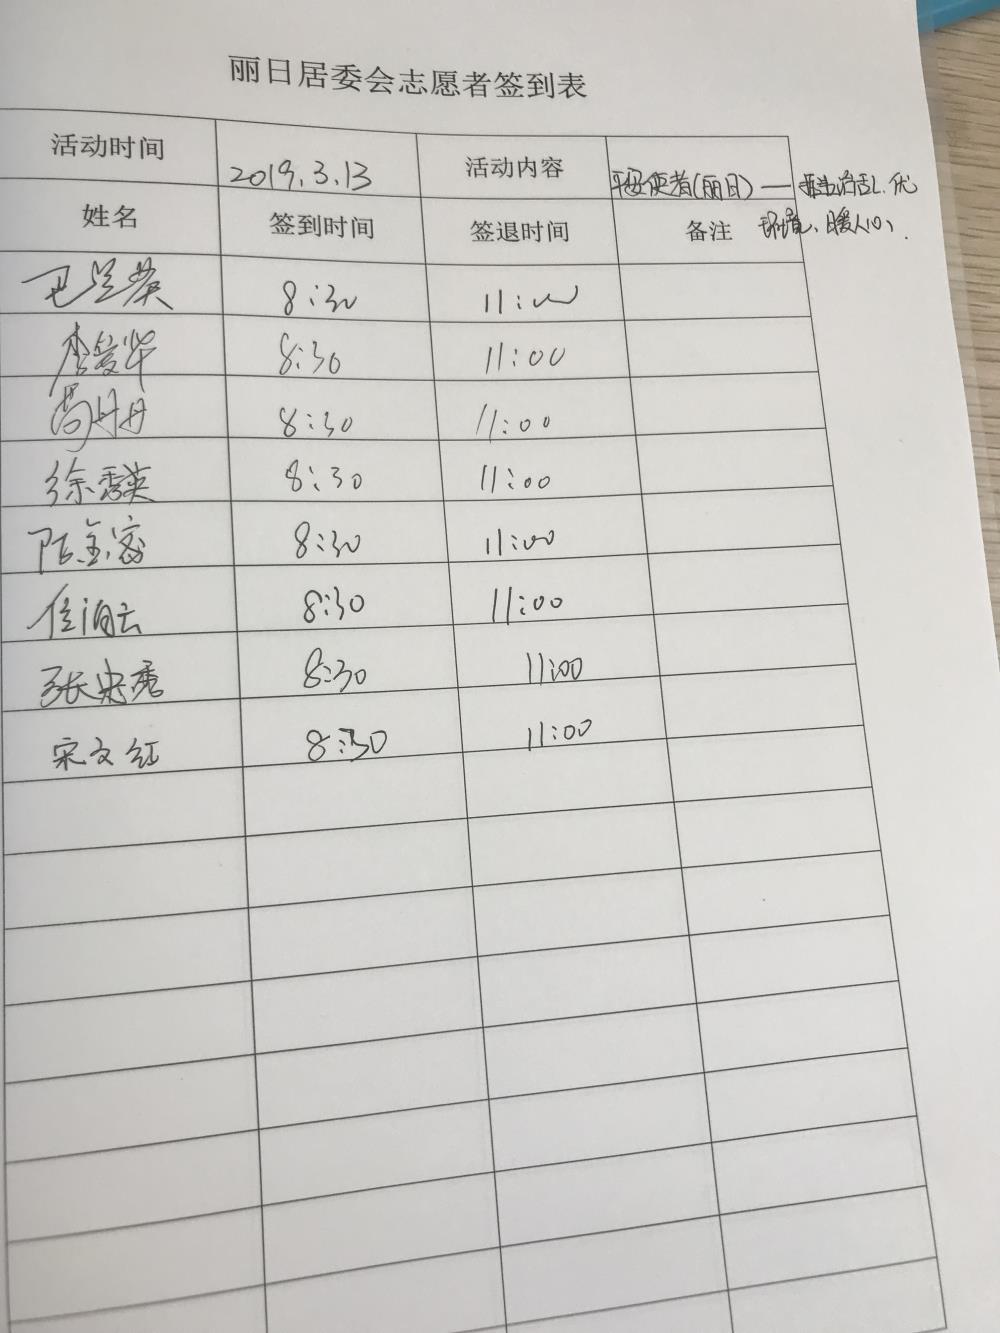 丽日居委会志愿者签到表
活动时间 2019.3.13 活动内容 平安使者(丽日)— 治乱、优
环境、暖人心.
姓名 签到时间 签退时间 备注
8:30 11:00
李爱华 8:30 11:00
周丹丹 8:30 11:00
徐秀英 8:30 11:00
8:30 11:00
8:30 11:00
张忠秀 8:30 11:00
宋文红 8:30 11:00